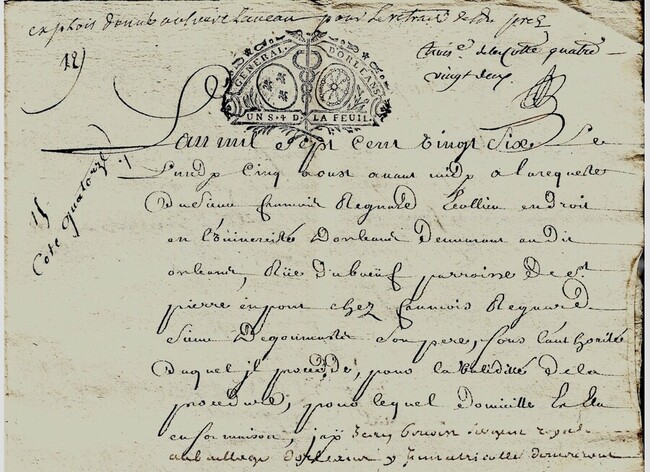 exploit donné au sieur Laveau pour le retrait de du prez
12)
GENERAL. D'ORLEANS
UN S. 4 D. LA FEUIL.
de la cotte quatre
vingt deux
L'an mil Sept Cent Vingt Six Le
Lundy Cinq aoust avant midy a la requeste
Du Sieur francois Regnard Ecollier en droit
en L'université D'orleans Demeurant au Dit
orleans, Rüe Du bœuf parroisse De St
pierre en pont chez francois Regnard
Sieur Degourmaite Son pere, Sous L'authorité
Duquel jl procedde, pour la Validité de la
procedure, pour lequel domicille Est Elu
en sa maison, jay sergent royal
au bailliage d'orleans y jmmatricullé demeurant
15
Cote quatorze